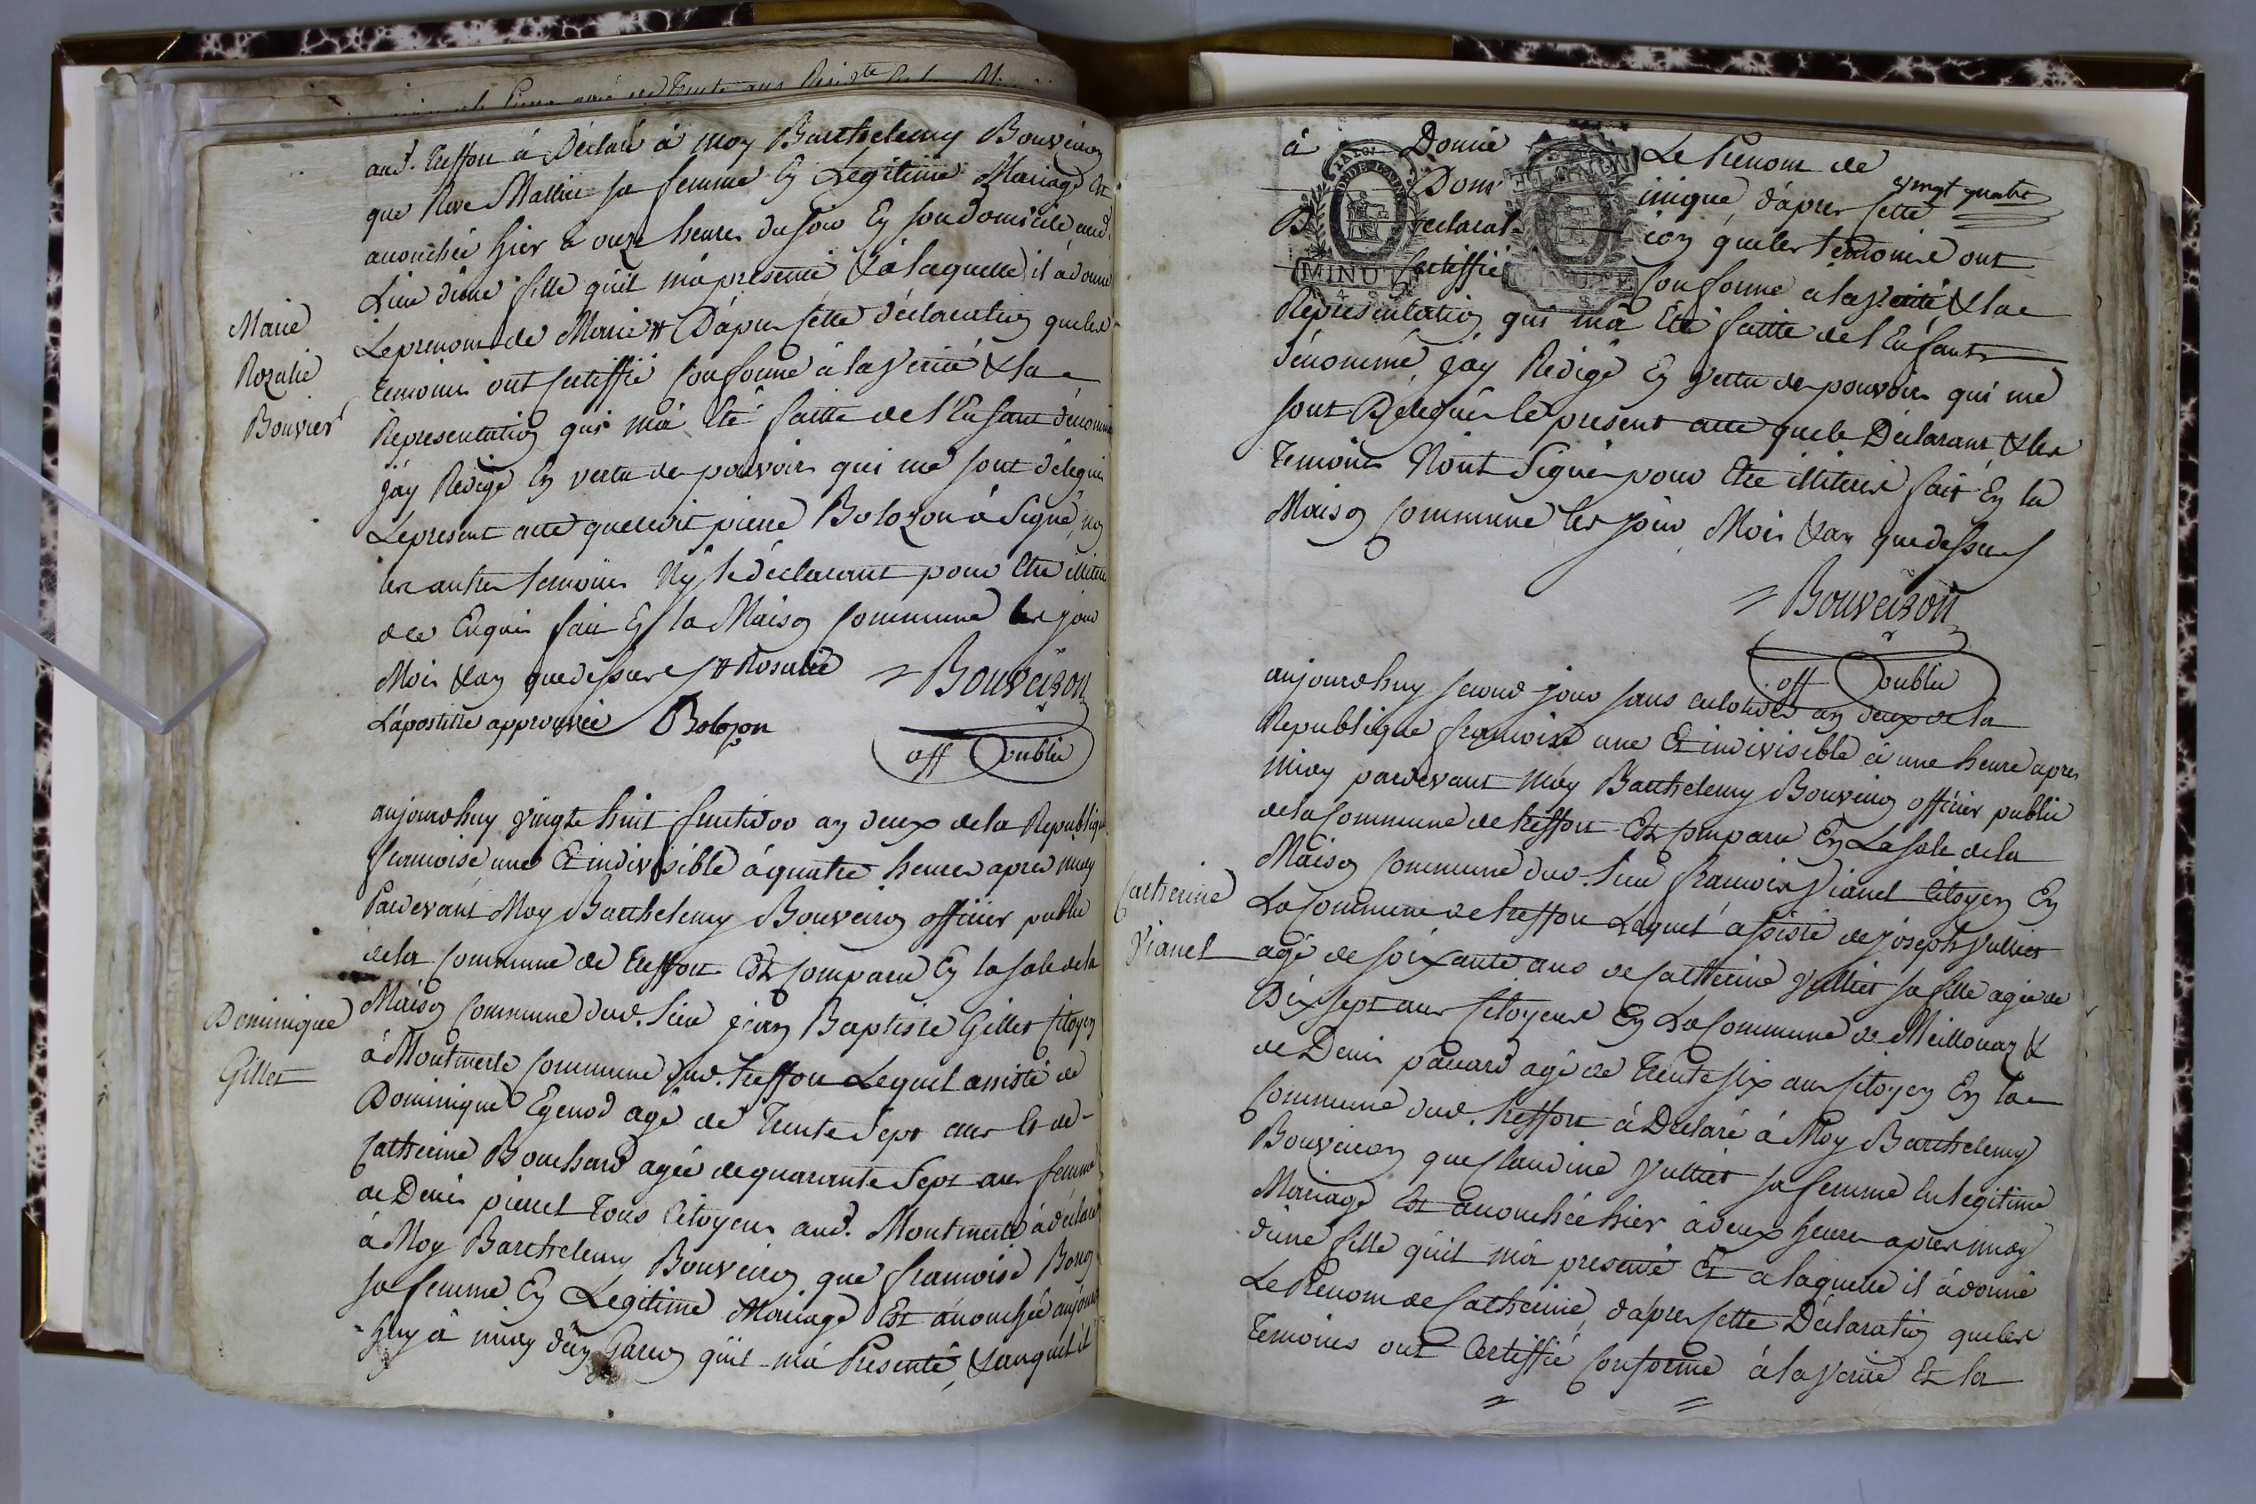 aud. treffort à Déclaré à moy Barthelemy Bouveiron
que Rose Mallier sa femme En Légitime Mariage Est
acouchée hier à onze heures du soir En son domicile aud.
Lieu d'une fille qu'il m'a presenté & à laquelle il à donné
Le prenom de Marie # D'apres cette déclaration que les
temoins ont certiffié conforme à la verité & la
Representation qui m'a Eté faitte de l'Enfant dénommé
j'ay Redigé En vertu des pouvoirs qui me sont délégués
Le present acte que ledit pierre Bolozon à Signé, non
les autres temoins Ny le déclarant pour Etre illiteré
de ce Enquis fait En la Maison commune les jour
Mois & an que dessus # Rosalie
Bouveiron
L'apostille approuvée Bolozon
off public
Marie
Rozalie
Bouvier
aujourdhuy vingt huit fructidor an deux de la Republique
francoise une Et indivisible à quatre heures apres midy
Pardevant Moy Barthelemy Bouveiron officier public
de la commune de treffort Est comparu En la sale de la
Maison commune dud. Lieu jean Baptiste Gillet citoyen
à Montmerle commune dud. treffort Lequel assisté de
Dominique Egenod agé de trente Sept ans Et de
Catherine Bouchard agée de quarante Sept ans femme
de Denis pienet tous Citoyens aud. Montmerle à déclaré
à Moy Barthelemy Bouveiron que francoise Bony
sa femme En Légitime Mariage Est acouchée aujourd
huy à midy d'un Garcon qu'il m'a Presenté, & auquel il
Dominique
Gillet
vingt quatre
à Donné Le Prenom de
Dominique d'apres cette
Déclaration que les temoins ont
certiffié conforme à la verité & la
MINUTE
Representation qui m'a Eté faitte de l'Enfant
dénommé, j'ay Redigé En vertu des pouvoirs qui me
sont Délégués le present acte que le Déclarant & les
temoins N'ont Signé pour Etre illiterés fait En la
Maison commune les jour Mois & an que dessus
Bouveiron
off public
aujourdhuy second jour sans culotides an deux de la
Republique francoise une Et indivisible à une heure apres
midy pardevant Moy Barthelemy Bouveiron officier public
de la commune de treffort Est comparu En La sale de la
Maison commune dud. Lieu francois Vianet Citoyen En
La commune de treffort Lequel assisté de joseph Vulliet
agé de soixante ans de Catherine Vulliet sa fille agée de
Dix sept ans citoyens En La commune de Meillonaz &
de Denis pauard agé de trente six ans citoyen En la
commune dud. treffort à Déclaré à Moy Barthelemy
Bouveiron que Claudine Vulliet sa femme En legitime
Mariage Est acouchée hier à deux heures apres midy
d'une fille qu'il m'a presenté Et a laquelle il à donné
Le Prenom de Catherine, d'apres cette Déclaration que les
temoins ont Certiffié conforme à la verité Et la
Catherine
Vianet